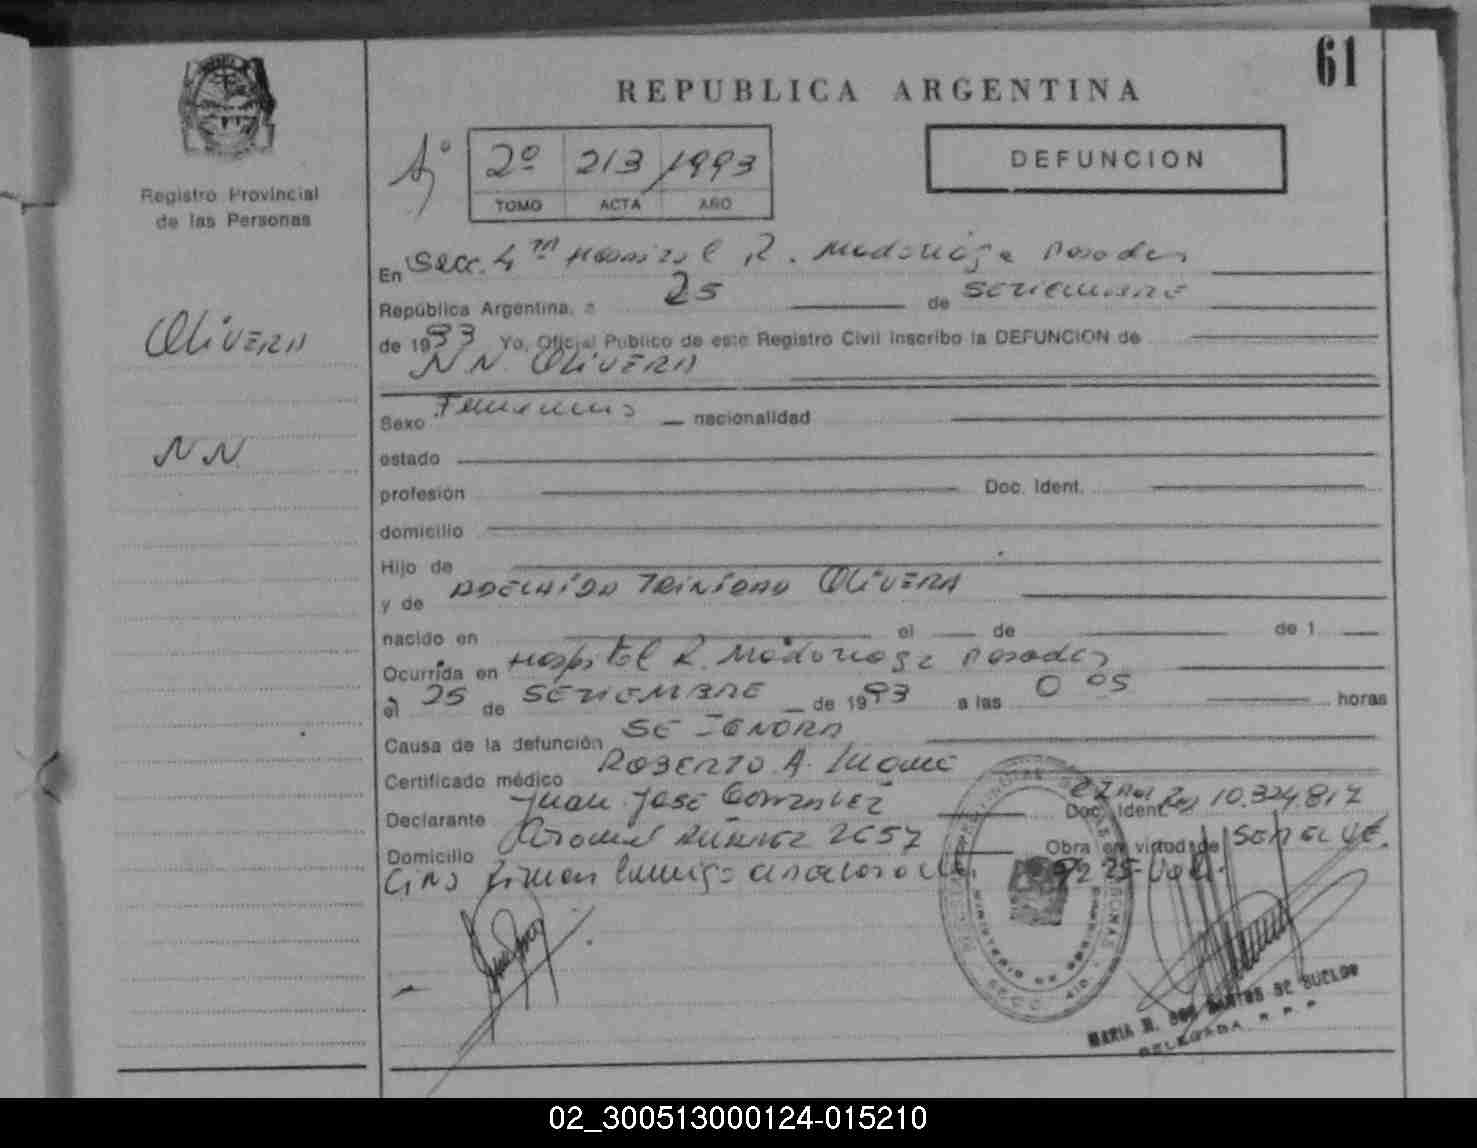 61
REPUBLICA ARGENTINA
2º 213 1993
TOMO ACTA AÑO
DEFUNCION
Registro Provincial
de las Personas
OLIVERA
NN
En Secc. 4ta Hospital R. Madariaga Posadas
República Argentina, a 25 de SETIEMBRE
de 1993 Yo, Oficial Publico de este Registro Civil inscribo la DEFUNCION de
NN. OLIVERA
Sexo Femenino nacionalidad
estado
profesión Doc. Ident.
domicilio
Hijo de
y de ADELAIDA TRINIDAD OLIVERA
nacido en el de de 1
Ocurrida en Hospital R. Madariaga Posadas
el 25 de SETIEMBRE de 1993 a las 0 05 horas
Causa de la defunción SE IGNORA
Certificado médico ROBERTO A. LUQUE
Declarante Juan José González Doc. Ident. 10.324.817
Domicilio 2657 Obra en virtud de
MINISTERIO DE GOBIERNO
MARIA DOS SANTOS DE SUELDO
DELEGADA R. P. P.
02_300513000124-015210